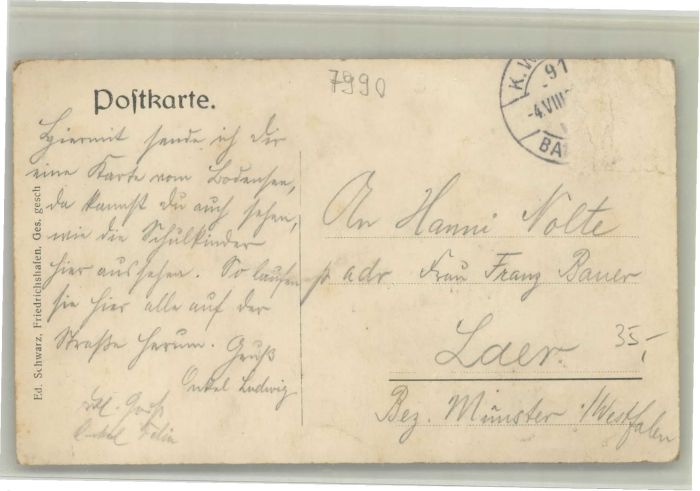 7990
K.W.
91
-4.VIII
BA
Postkarte.
Hiermit sende ich Dir
eine Karte vom Bodensee,
da kannst Du auch sehen,
wie die Schulkinder
hier aussehen. So laufen
sie hier alle auf der
Straße herum. Gruß
Onkel Ludwig
Onkel
An Hanni Nolte
p adr Frau Franz Bauer
Laer.
35,-
Bez. Münster i/Westfalen
Ed. Schwarz, Friedrichshafen, Ges. gesch